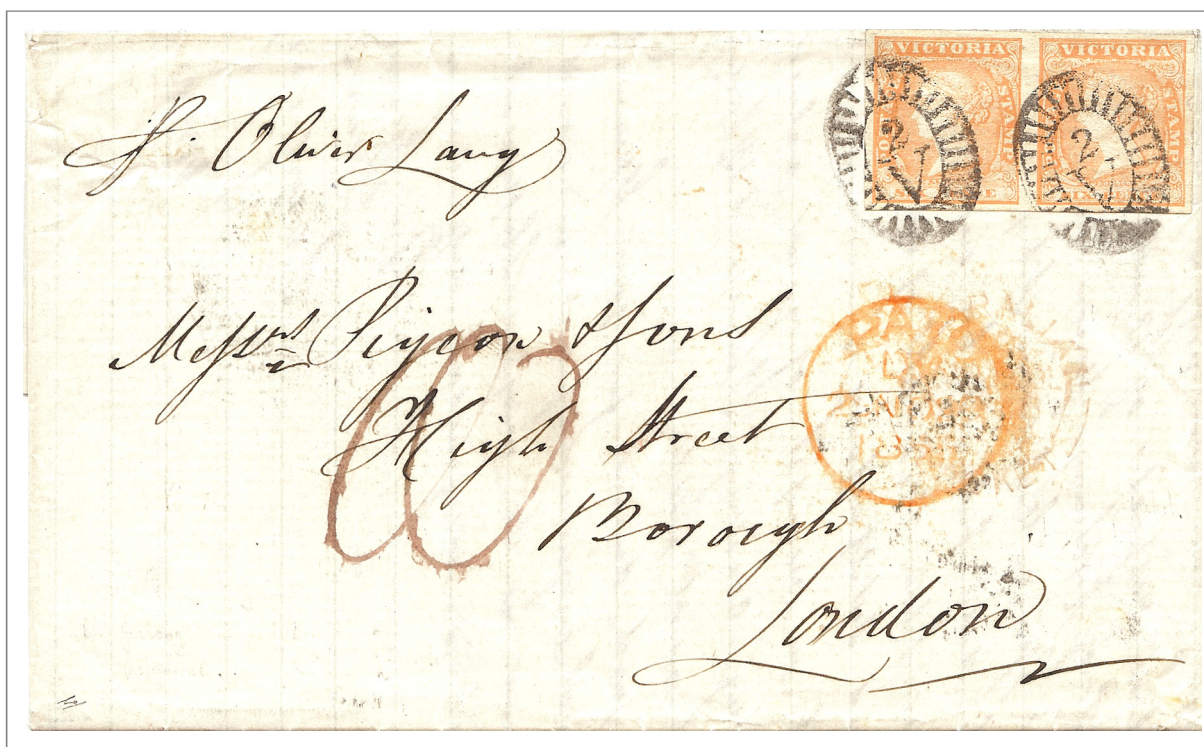 VICTORIA VICTORIA
STAMP STAMP
21 21
V V
Pr. Oliver Lang
Messrs Pigeon & Sons
High Street
Borough
London
PAID